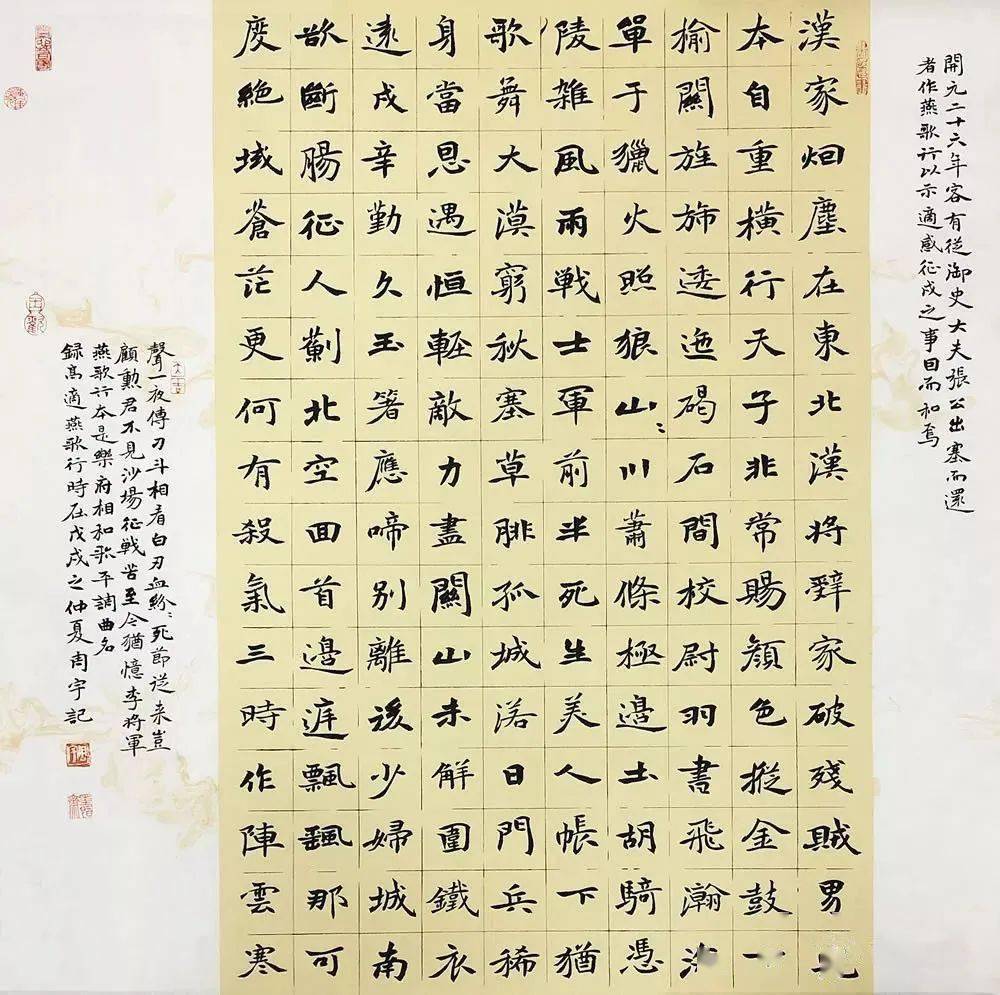 開元二十六年客有從御史大夫張公出塞而還
者作燕歌行以示適感征戍之事因而和焉
漢家烟塵在東北漢將辭家破殘賊男
本自重橫行天子非常賜顏色摐金鼓一
榆關旌旆逶迤碣石間校尉羽書飛瀚海
單于獵火照狼山〻川蕭條極邊土胡騎憑
陵雜風雨戰士軍前半死生美人帳下猶
歌舞大漠窮秋塞草腓孤城落日門兵稀
身當恩遇恒輕敵力盡關山未解圍鐵衣
遠戍辛勤久玉箸應啼別離後少婦城南
欲斷腸征人薊北空回首邊庭飄飄那可
度絕域蒼茫更何有殺氣三時作陣雲寒
聲一夜傳刁斗相看白刃血紛〻死節從来豈
顧勳君不見沙場征戰苦至今猶憶李將軍
燕歌行本是樂府相和歌平調曲名
録高適燕歌行時在戊戌之仲夏周宇記